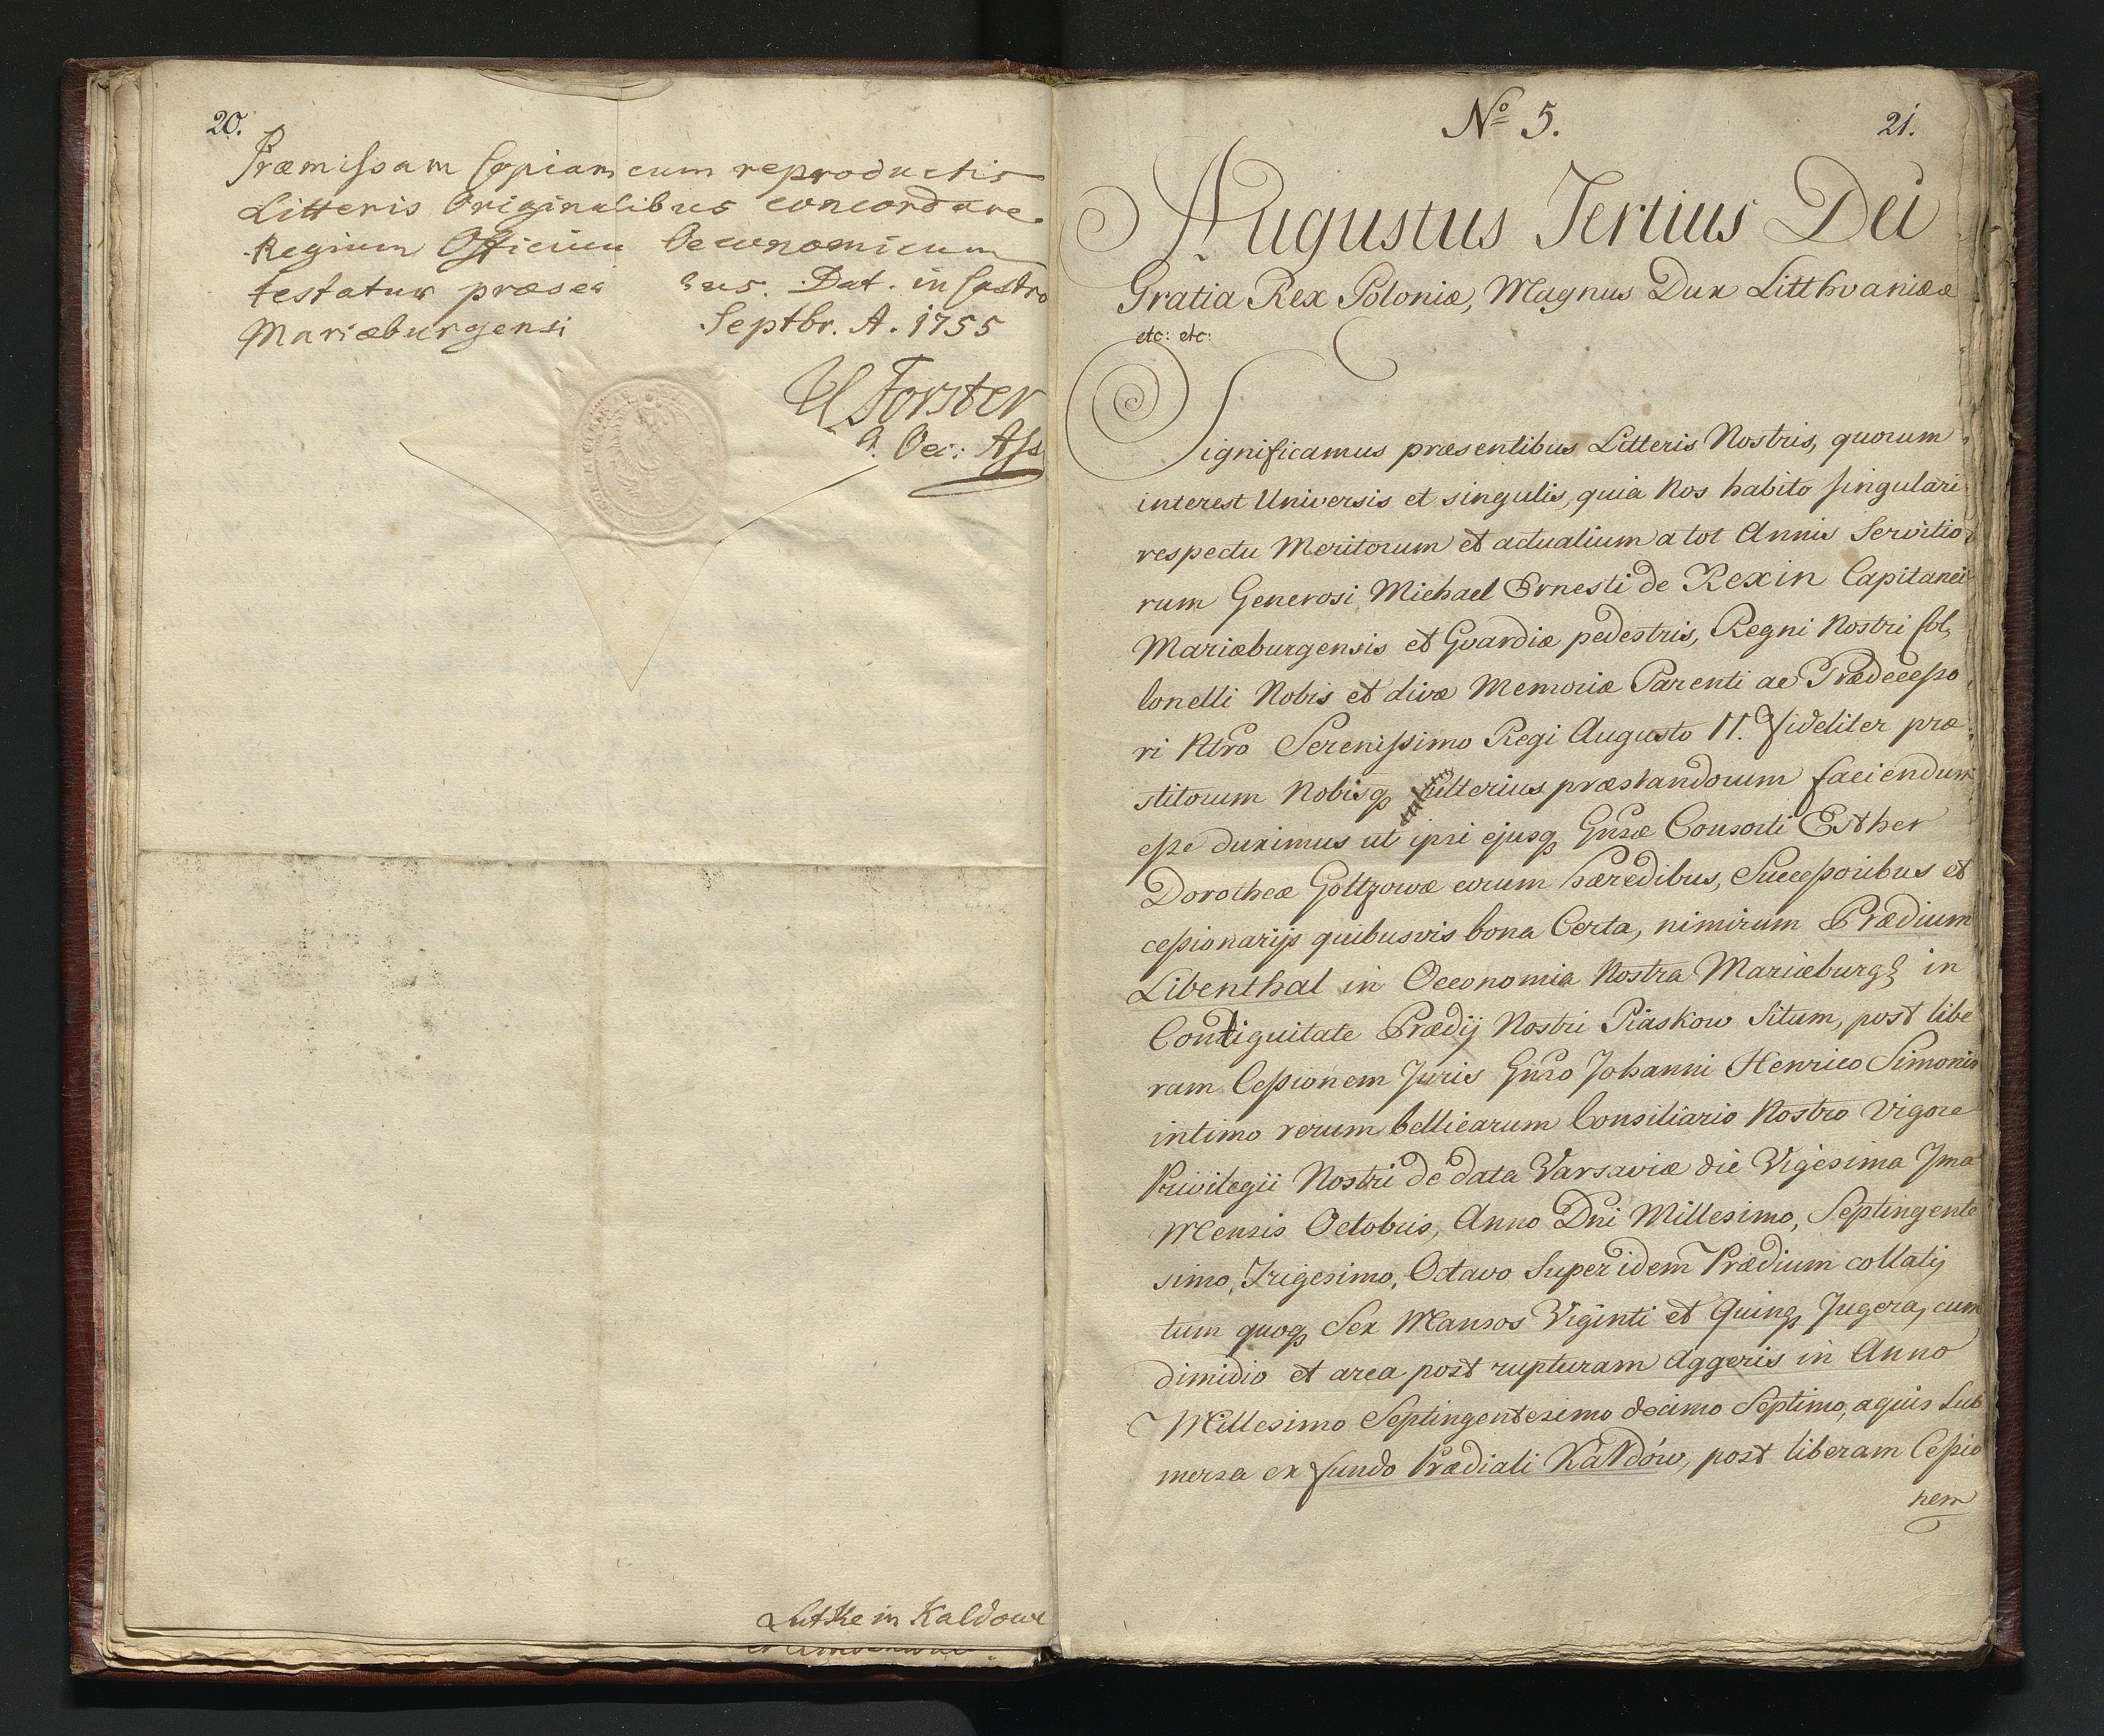 20.
Præmissam Copiam cum reproductis
Litteris Originalibus concordare
Regium Officium Oeconomicum
testatur præsen bus. Dat. in Castro
Mariæburgensi Septbr. A. 1755
Forster
Oec: Ass
Lutke in Kaldowe
No 5.
21.
Augustus Tertius Dei
Gratia Rex Poloniæ, Magnus Dux Litthvaniææ
etc: etc:
Significamus præsentibus Litteris Nostris, quorum
interest Universis et singulis, quia Nos habito singulari
respectu Meritorum et actualium a tot Annis Servitio
rum Generosi Michael Ernesti de Rexin Capitanei
Mariæburgensis et Gvardiæ pedestris, Regni Nostri Col,
lonelli Nobis et divæ Memoriæ Parenti ac Prædecesso,
ri Ntro Serenissimo Regi Augusto II. fideliter præ,
stitorum Nobisq ulterius præstandorum faciendum
esse duximus ut ipsi ejusq Gnsæ Consorti Esther
Dorotheæ Goltzowæ eorum hæredibus, Successoribus et
cessionarijs quibusvis bona Certa, nimirum Prædium
Libenthal in Oeconomia Nostra Mariæburg: in
Contiguitate Prædij Nostri Piaskow Situm, post libe
ram Cessionem Juris Gnso Johanni Henrico Simonis
intimo rerum bellicarum Consiliario Nostro Vigore
Privilegii Nostri de data Varsaviæ die Vigesima Jma
Mensis Octobris, Anno Dni Millesimo, Septingente
simo, Trigesimo, Octavo Super idem Prædium collatij
tum quoq Sex Mansos Viginti et Quinq Jugera, cum
dimidio et area post rupturam Aggeris in Anno
Millesimo Septingentesimo decimo Septimo, aquis Sub
mersa ex fundo Prædiali Kałdów, post liberam Cessio
nem